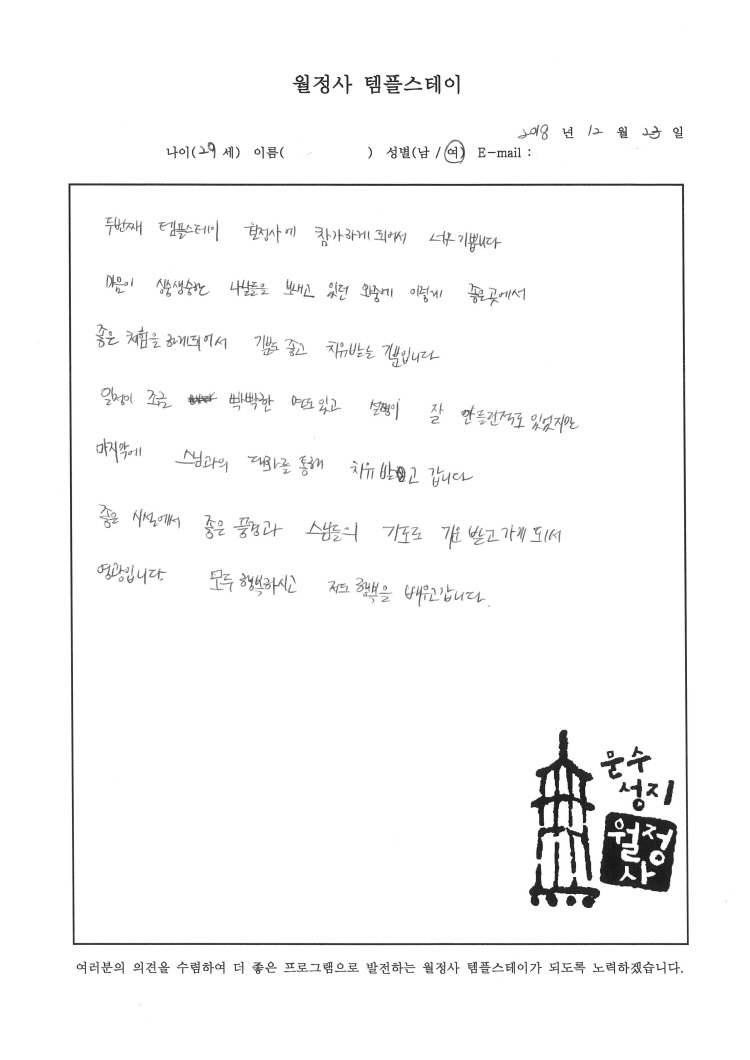 월정사 템플스테이
2018 년 12 월 23 일
나이(29 세) 이름( ) 성별(남 / 여) E-mail :
두번째 템플스테이 월정사에 참가하게 되어서 너무 기쁩니다
마음이 싱숭생숭한 나날들을 보내고 있던 와중에 이렇게 좋은곳에서
좋은 체험을 하게되어서 기분도 좋고 치유받는 기분입니다
일정이 조금 빡빡한 면도있고 설명이 잘 안들린적도 있었지만
마지막에 스님과의 대화를 통해 치유 받고 갑니다
좋은 시설에서 좋은 풍경과 스님들의 기도로 기운 받고가게 되서
영광입니다. 모두 행복하시고 저도 행복을 배우고갑니다.
문수
성지
월정
사
여러분의 의견을 수렴하여 더 좋은 프로그램으로 발전하는 월정사 템플스테이가 되도록 노력하겠습니다.